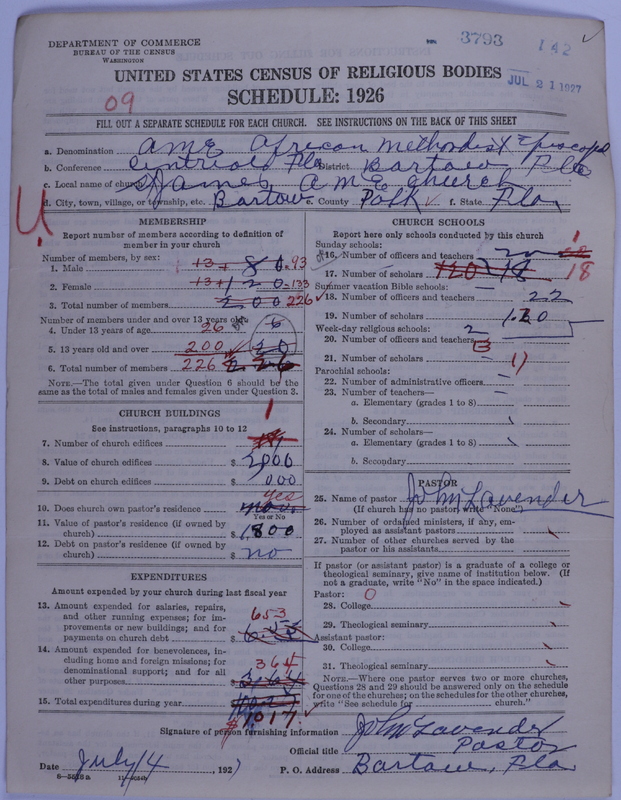 DEPARTMENT OF COMMERCE
BUREAU OF THE CENSUS
WASHINGTON
3793 142
JUL 21 1927
UNITED STATES CENSUS OF RELIGIOUS BODIES
SCHEDULE: 1926
09
FILL OUT A SEPARATE SCHEDULE FOR EACH CHURCH. SEE INSTRUCTIONS ON THE BACK OF THIS SHEET
a. Denomination AME African Methodist Episcopal
b. Conference Fla District Bartow Fla
c. Local name of church St James A M E church
d. City, town, village, or township, etc. Bartow e. County Polk f. State Fla
MEMBERSHIP
Report number of members according to definition of
member in your church
Number of members, by sex:
1. Male +13+ 80 93
2. Female +13+ 120 133
3. Total number of members 200 226
Number of members under and over 13 years old:
4. Under 13 years of age 26 6
5. 13 years old and over 200 20
6. Total number of members 226 226
NOTE.—The total given under Question 6 should be the
same as the total of males and females given under Question 3.
CHURCH BUILDINGS
See instructions, paragraphs 10 to 12
7. Number of church edifices 1
8. Value of church edifices $ 2000
9. Debt on church edifices $ 000
10. Does church own pastor's residence Yes
Yes or No
11. Value of pastor's residence (if owned by
church) $ 1800
12. Debt on pastor's residence (if owned by
church) $ no
EXPENDITURES
Amount expended by your church during last fiscal year
13. Amount expended for salaries, repairs,
and other running expenses; for im-
provements or new buildings; and for
payments on church debt $ 653
14. Amount expended for benevolences, in-
cluding home and foreign missions; for
denominational support; and for all
other purposes 364
15. Total expenditures during year
$1017
CHURCH SCHOOLS
Report here only schools conducted by this church
Sunday schools:
16. Number of officers and teachers 1
17. Number of scholars 120 18 18
Summer vacation Bible schools:
18. Number of officers and teachers 22
19. Number of scholars 120
Week-day religious schools: 2
20. Number of officers and teachers
21. Number of scholars
Parochial schools:
22. Number of administrative officers
23. Number of teachers—
a. Elementary (grades 1 to 8)
b. Secondary
24. Number of scholars—
a. Elementary (grades 1 to 8)
b. Secondary
PASTOR
25. Name of pastor John Lavender
(If church has no pastor, write "None")
26. Number of ordained ministers, if any, em-
ployed as assistant pastors
27. Number of other churches served by the
pastor or his assistants
If pastor (or assistant pastor) is a graduate of a college or
theological seminary, give name of institution below. (If
not a graduate, write "No" in the space indicated.)
Pastor: 0
28. College
29. Theological seminary
Assistant pastor:
30. College
31. Theological seminary
NOTE.—Where one pastor serves two or more churches,
Questions 28 and 29 should be answered only on the schedule
for one of the churches; on the schedules for the other churches,
write "See schedule for church."
Signature of person furnishing information John Lavender
Official title Pastor
Date July 14, 1927 P. O. Address Bartow, Fla